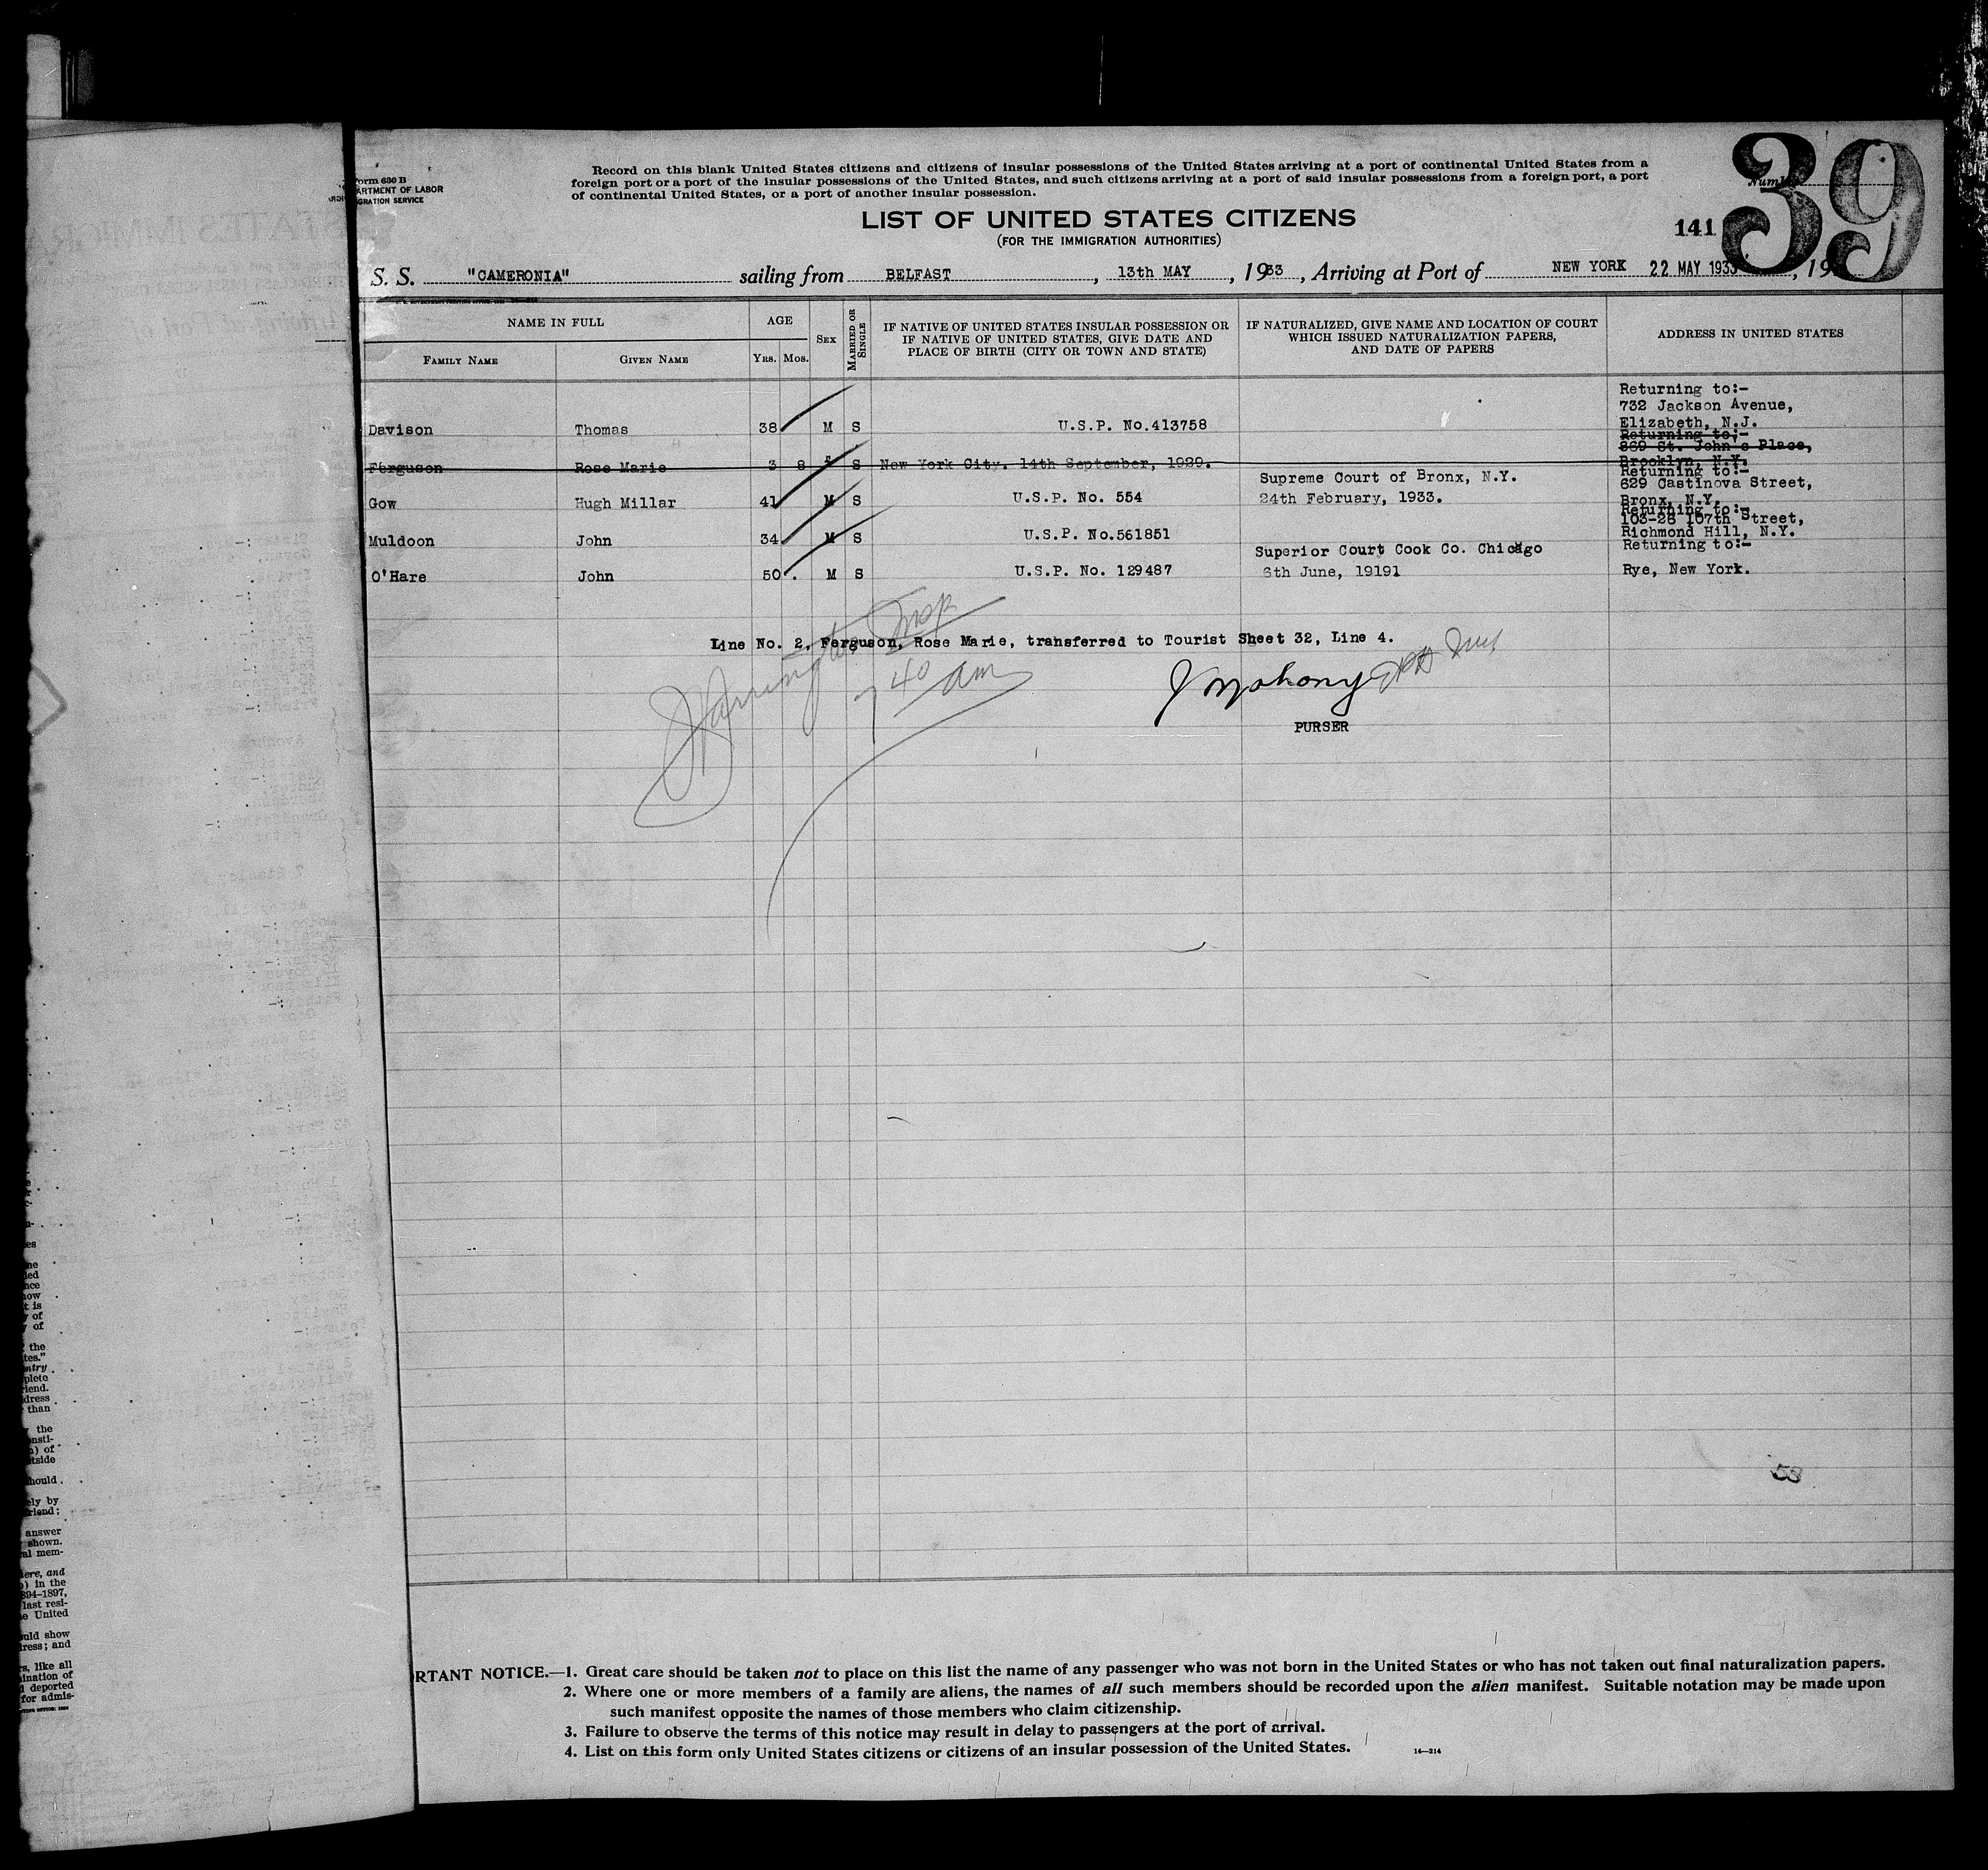 Form 630 B
ARTMENT OF LABOR
GRATION SERVICE
Record on this blank United States citizens and citizens of insular possessions of the United States arriving at a port of continental United States from a
foreign port or a port of the insular possessions of the United States, and such citizens arriving at a port of said insular possessions from a foreign port, a port
of continental United States, or a port of another insular possession.
39
LIST OF UNITED STATES CITIZENS
(FOR THE IMMIGRATION AUTHORITIES)
141
S. S. "CAMERONIA" sailing from BELFAST, 13th MAY, 1933, Arriving at Port of NEW YORK 22 MAY 1933, 19
NAME IN FULL
AGE
SEX
MARRIED OR SINGLE
IF NATIVE OF UNITED STATES INSULAR POSSESSION OR
IF NATIVE OF UNITED STATES, GIVE DATE AND
PLACE OF BIRTH (CITY OR TOWN AND STATE)
IF NATURALIZED, GIVE NAME AND LOCATION OF COURT
WHICH ISSUED NATURALIZATION PAPERS,
AND DATE OF PAPERS
ADDRESS IN UNITED STATES
FAMILY NAME GIVEN NAME YRS. MOS.
Returning to:-
732 Jackson Avenue,
Davison Thomas 38 M S U.S.P. No.413758 Elizabeth, N.J.
Returning to:-
869 St. John's Place,
Ferguson Rose Marie 3 8 F S New York City. 14th September, 1929. Brooklyn, N.Y.
Returning to:-
Supreme Court of Bronx, N.Y. 629 Castinova Street,
Gow Hugh Millar 41 M S U.S.P. No. 554 24th February, 1933. Bronx, N.Y.
Returning to:-
103-28 107th Street,
Muldoon John 34 M S U.S.P. No.561851 Richmond Hill, N.Y.
Superior Court Cook Co. Chicago Returning to:-
O'Hare John 50 M S U.S.P. No. 129487 6th June, 19191 Rye, New York.
Insp
Line No. 2, Ferguson, Rose Marie, transferred to Tourist Sheet 32, Line 4.
7 40 am
J Mahony
PURSER
58
RTANT NOTICE.—1. Great care should be taken not to place on this list the name of any passenger who was not born in the United States or who has not taken out final naturalization papers.
2. Where one or more members of a family are aliens, the names of all such members should be recorded upon the alien manifest. Suitable notation may be made upon
such manifest opposite the names of those members who claim citizenship.
3. Failure to observe the terms of this notice may result in delay to passengers at the port of arrival.
4. List on this form only United States citizens or citizens of an insular possession of the United States.
14—214